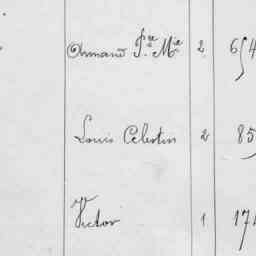 Armand Pre Mie 2 654
Louis Celestin 2 85
Victor 1 174